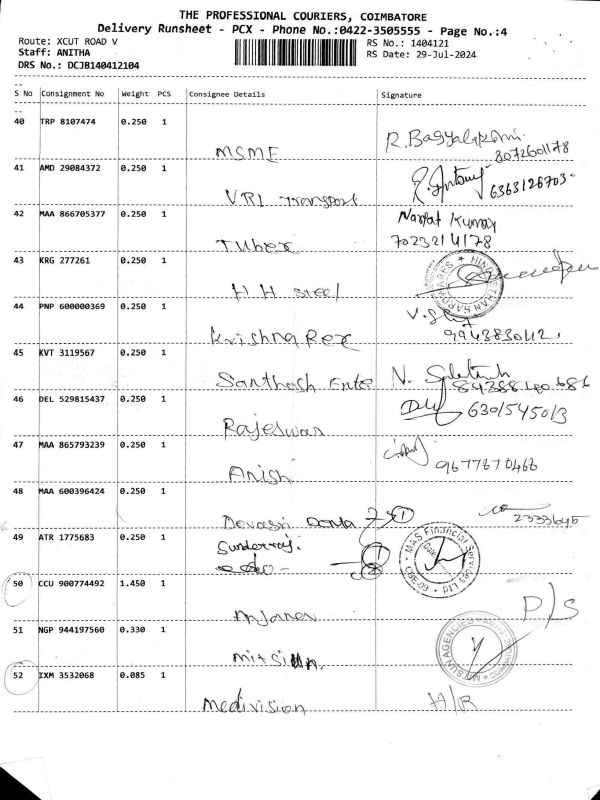 THE PROFESSIONAL COURIERS, COIMBATORE
Delivery Runsheet - PCX - Phone No.:0422-3505555 - Page No.:4
Route: XCUT ROAD V RS No.: 1404121
Staff: ANITHA RS Date: 29-Jul-2024
DRS No.: DCJB140412104
S No Consignment No Weight PCS Consignee Details Signature
40 TRP 8107474 0.250 1
MSME R. Bagyalakshmi
8072601178
41 AMD 29084372 0.250 1
VRL Transport R. Antony 6363126703
42 MAA 866705377 0.250 1 Narpat Kumar
Tuber 7023214178
43 KRG 277261 0.250 1
H H steel
44 PNP 600000369 0.250 1
Krishna Rex
45 KVT 3119567 0.250 1
Santhosh Ente N.
46 DEL 529815437 0.250 1
Rajeswar 6301545013
47 MAA 865793239 0.250 1
Anish 9677670468
48 MAA 600396424 0.250 1
Devasri 2333645
49 ATR 1775683 0.250 1
Sunderraj. MAS Financial Services Ltd
50 CCU 900774492 1.450 1
P/S
51 NGP 944197560 0.330 1
MITSUN AGENCIES
52 IXM 3532068 0.085 1
Medivision H/R